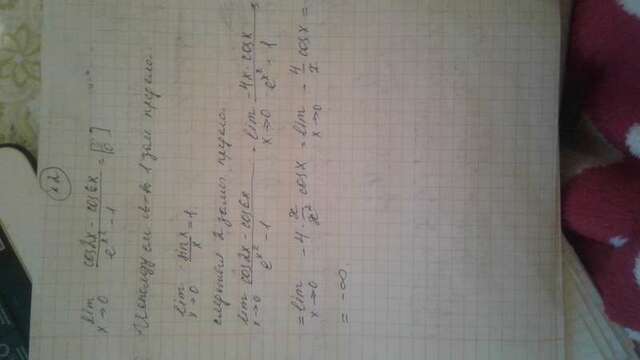 12
lim x→0 (cos2x - cos6x)/(e^{x²} - 1) = [0/0]
Используем 1 зам. предел.
lim x→0 sinx/x = 1
2 зам. предела.
lim x→0 (cos2x - cos6x)/(e^{x²} - 1) = lim x→0 (-4x · cosx)/(e^{x²} - 1) =
= lim x→0 -4 · x/x² cosx = lim x→0 - 4/x cosx =
= -∞.